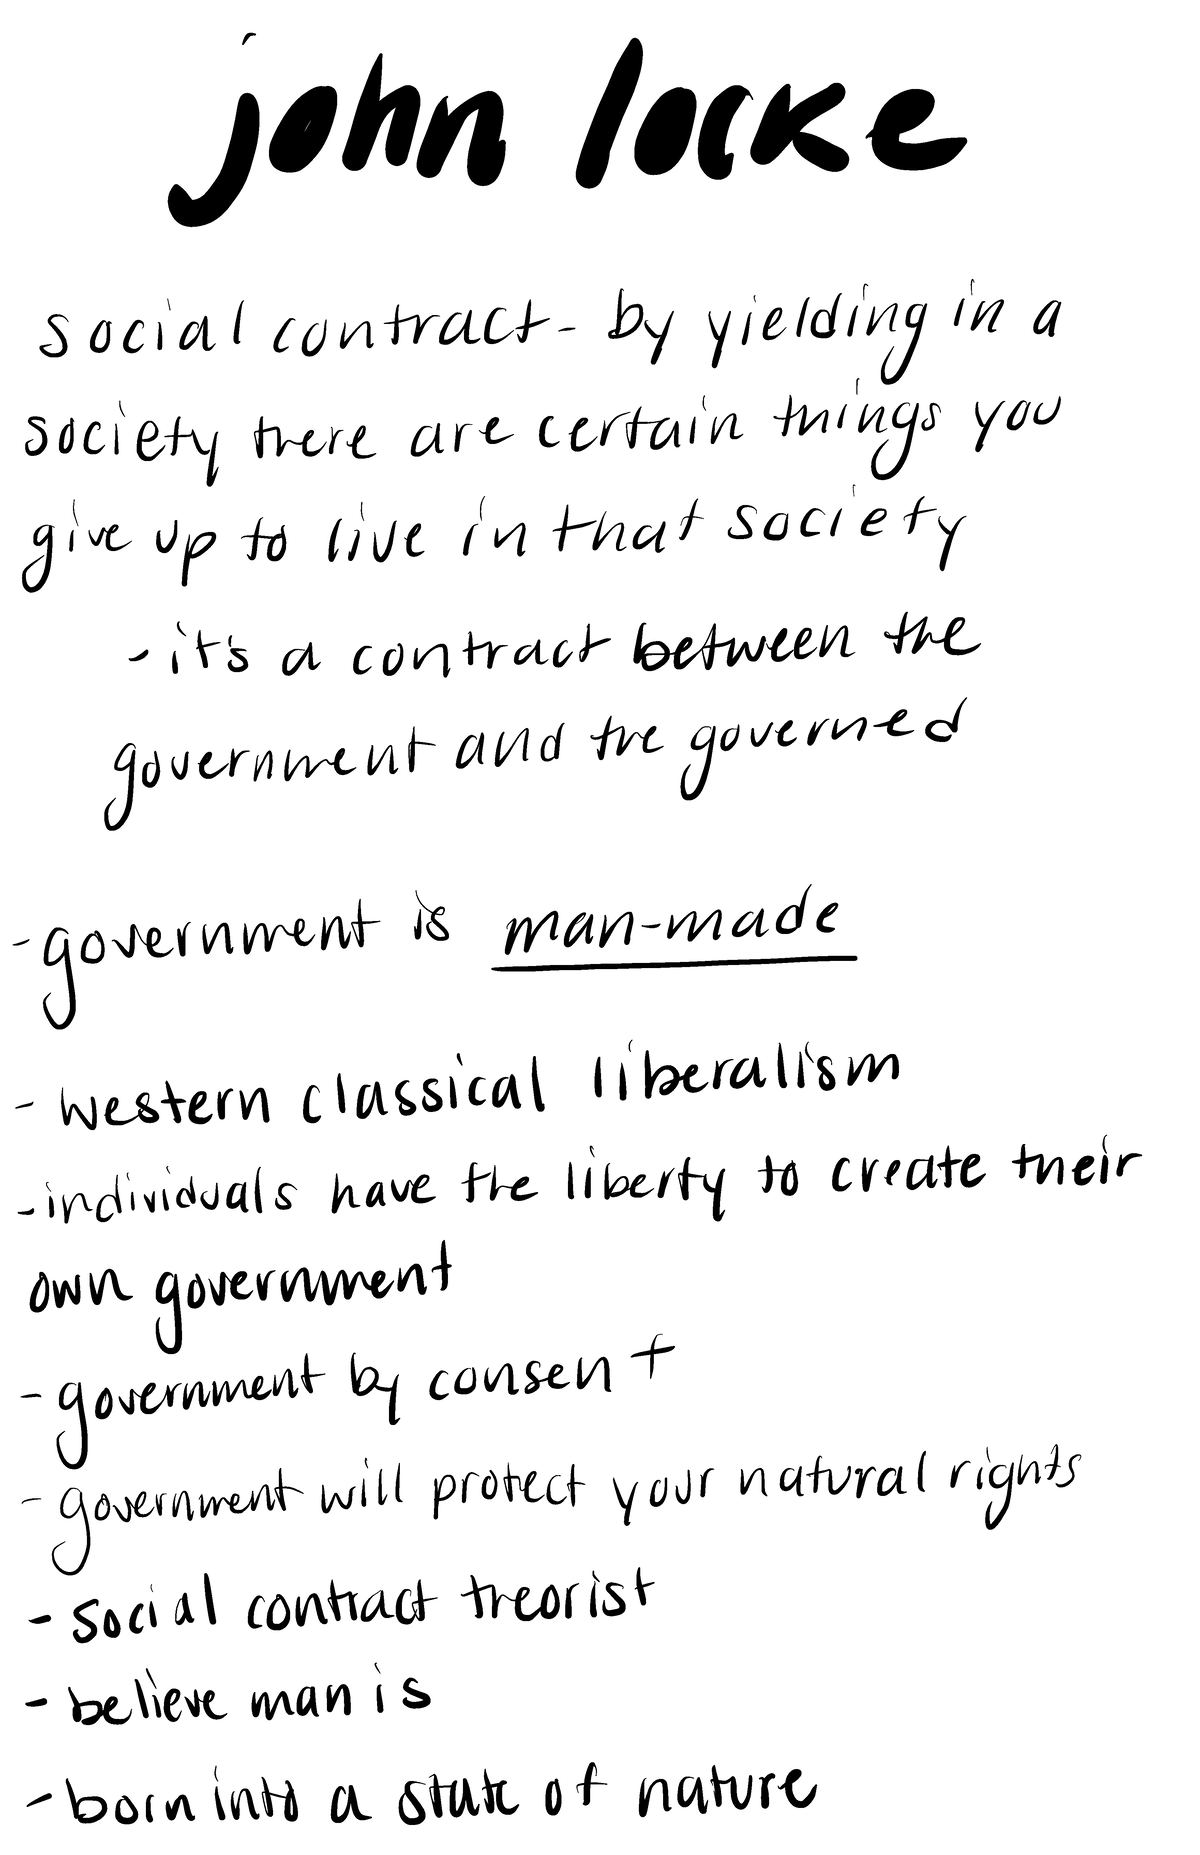 john locke
social contract - by yielding in a
society there are certain things you
give up to live in that society
- it's a contract between the
government and the governed
- government is man-made
- western classical liberalism
- individuals have the liberty to create their
own government
- government by consent
- government will protect your natural rights
- social contract theorist
- believe man is
- born into a state of nature